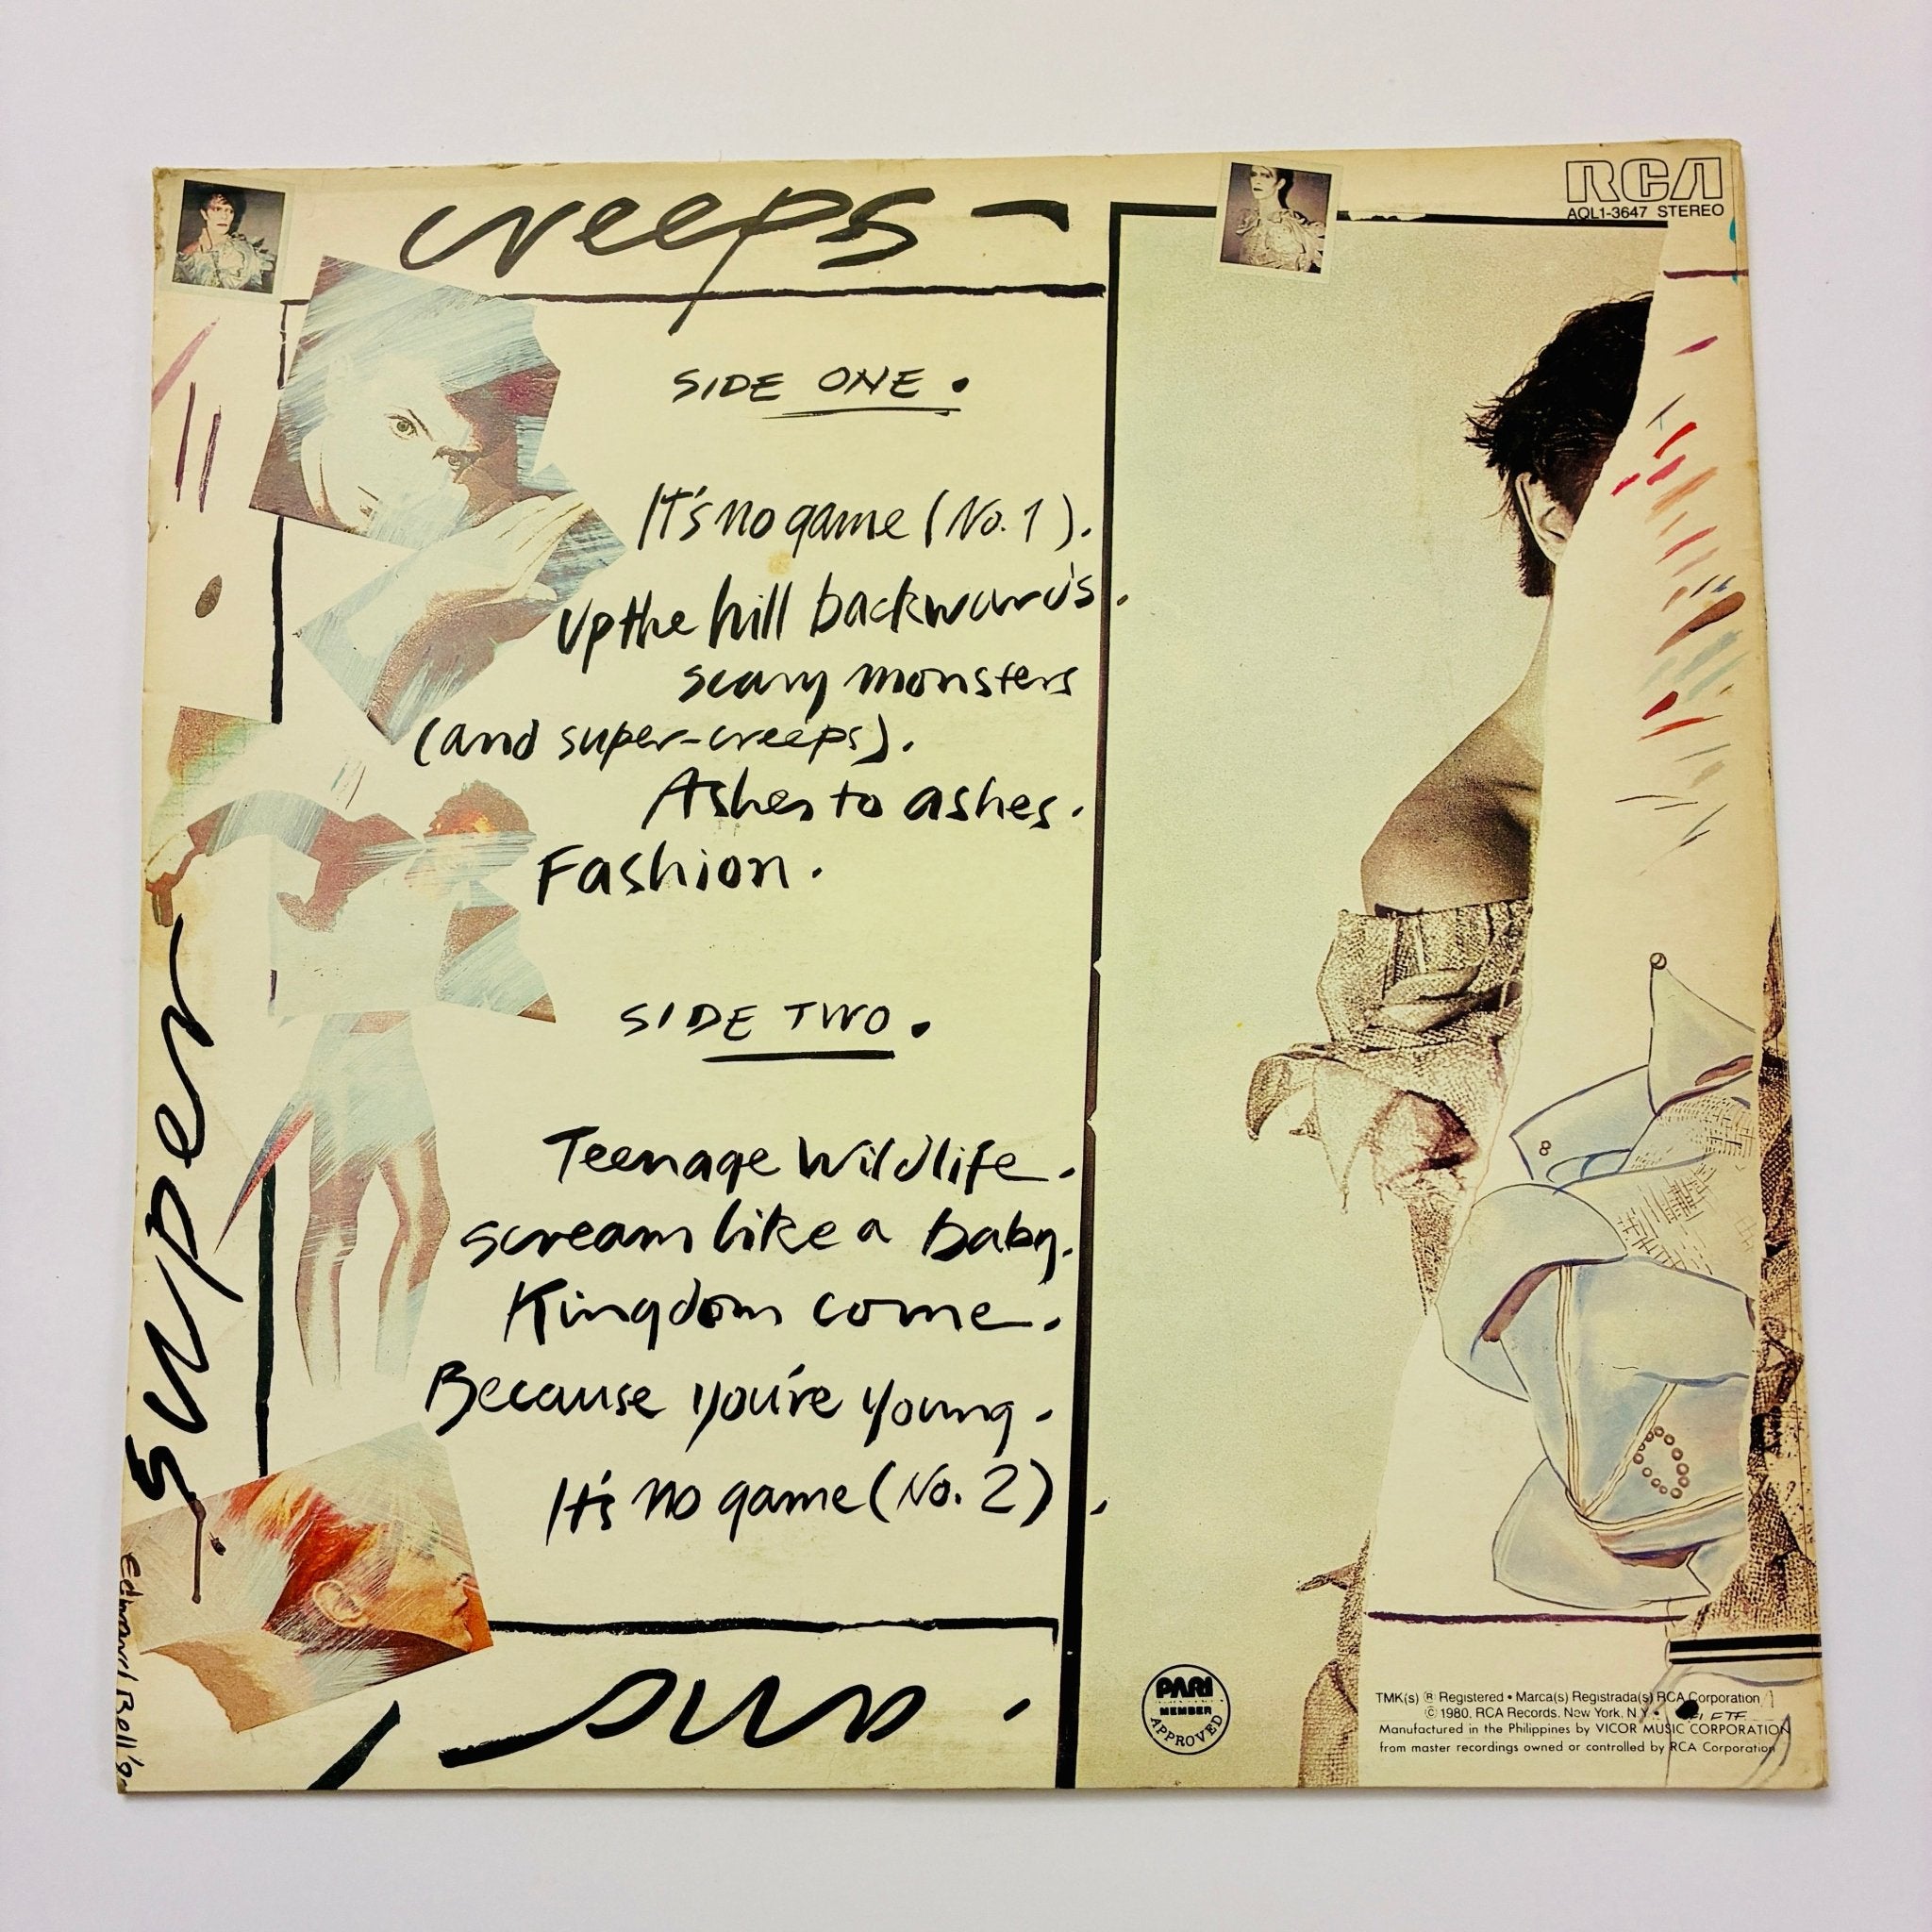 creeps –
RCA
AQL1-3647 STEREO
SIDE ONE.
It's no game (No. 1).
Up the hill backwards.
scary monsters
(and super-creeps).
Ashes to ashes.
Fashion.
SIDE TWO.
Teenage Wildlife.
scream like a baby.
Kingdom come.
Because you're young.
It's no game (No. 2).
super
Edward Bell
PARI
MEMBER
APPROVED
TMK(s) ® Registered • Marca(s) Registrada(s) RCA Corporation
© 1980, RCA Records, New York, N.Y.
Manufactured in the Philippines by VICOR MUSIC CORPORATION
from master recordings owned or controlled by RCA Corporation